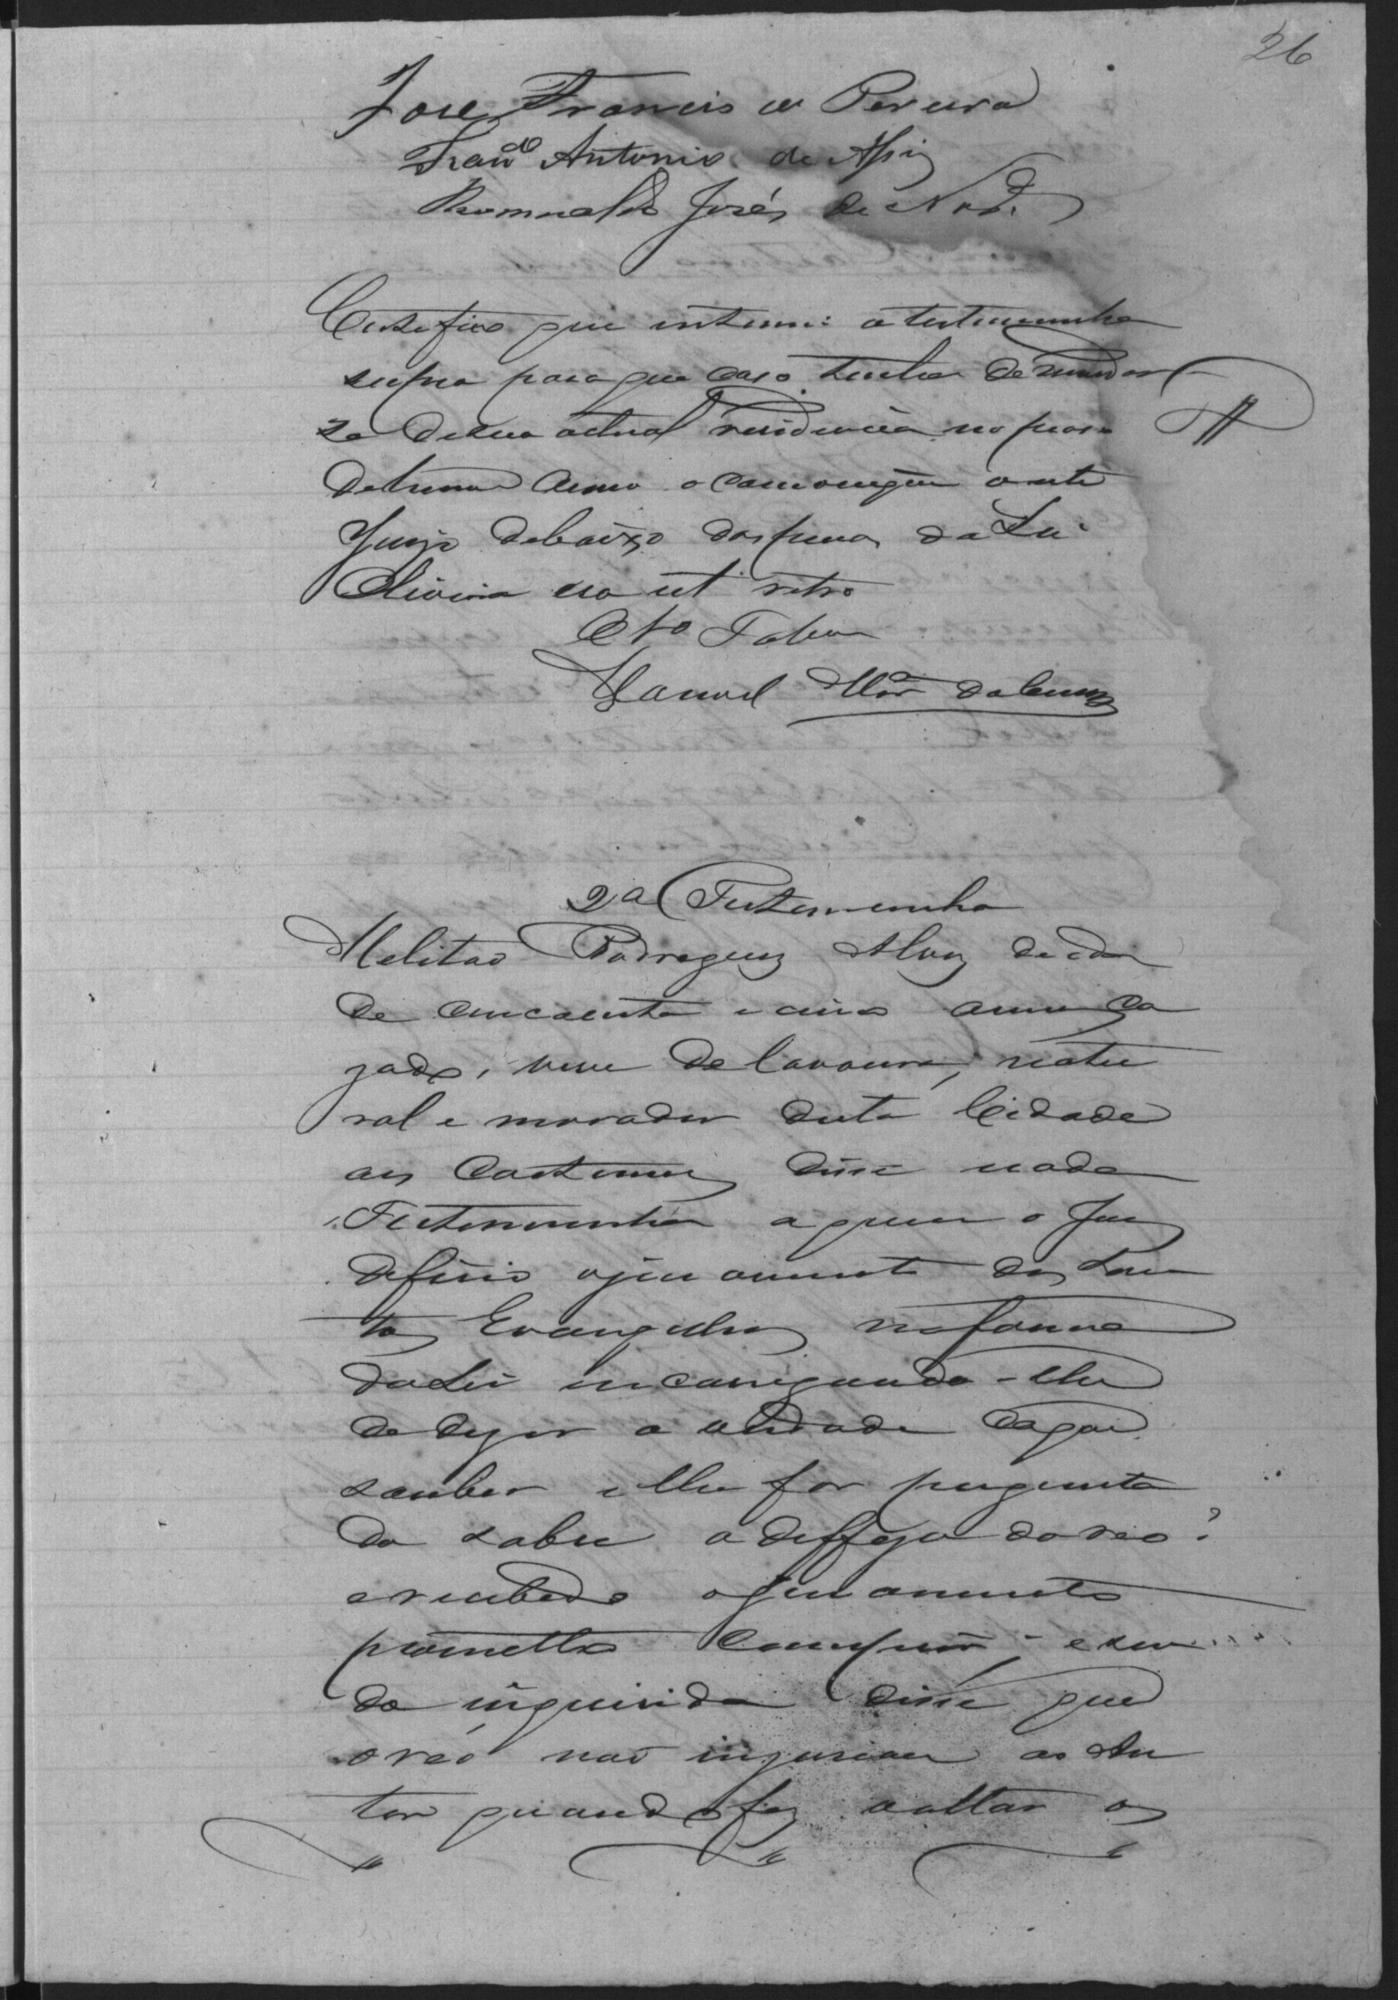 26
Jose Francisco Pereira
Fran.co Antonio de Assiz
Romualdo José de
Certifico que intimei a testemunha
supra para que caso tenha de mudar
se de sua actual residencia no praso
de hum anno o communique a este
Juizo debaixo das penas da Lei
Oliveira era ut retro
O Tabam
Manoel Mar.a da Cunha
2a Testemunha
Melitão Rodrigues Alves de ida
de cincoenta e cinco annos ca
zado, vive de lavoura, natu
ral e morador desta Cidade
aos Costumes disse nada
Testemunha a quem o Juiz
deferio o juramento dos San
tos Evangelhos na forma
da Lei incarregando-lhe
de dizer a verdade do que
souber e lhe for pergunta
do sobre a deffeza do reo?
e recebido o juramento
prometteo cumprir, e sen
do inquirida disse que
o reo não injuriou ao Au
tor quando fez voltar os